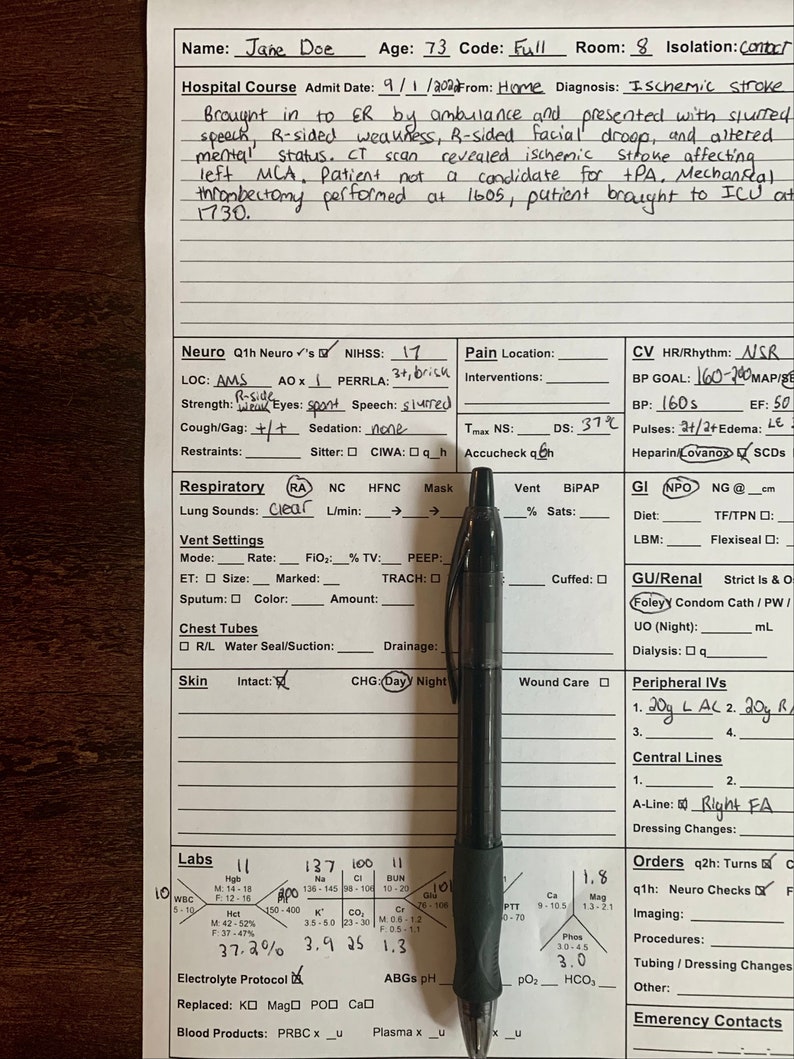 Name: Jane Doe Age: 73 Code: Full Room: 8 Isolation: contact
Hospital Course Admit Date: 9/1/2022 From: Home Diagnosis: Ischemic stroke
Brought in to ER by ambulance and presented with slurred
speech, R-sided weakness, R-sided facial droop, and altered
mental status. CT scan revealed ischemic stroke affecting
left MCA. Patient not a candidate for tPA. Mechanical
thrombectomy performed at 1605, patient brought to ICU at
1730.
Neuro Q1h Neuro ✓'s ☑ NIHSS: 17
LOC: AMS AO x 1 PERRLA: 3+, brisk
Strength: R-side weak Eyes: spont Speech: slurred
Cough/Gag: +/+ Sedation: none
Restraints: Sitter: ☐ CIWA: ☐ q__h
Pain Location:
Interventions:
Tmax NS: DS: 37°C
Accucheck q6h
CV HR/Rhythm: NSR
BP GOAL: 160-200 MAP/
BP: 160s EF: 50
Pulses: 2+/2+ Edema: LE
Heparin/Lovanox ☑ SCDs
Respiratory RA NC HFNC Mask Vent BiPAP
Lung Sounds: Clear L/min: → → % Sats:
Vent Settings
Mode: Rate: FiO₂: % TV: PEEP:
ET: ☐ Size: Marked: TRACH: ☐ Cuffed: ☐
Sputum: ☐ Color: Amount:
Chest Tubes
☐ R/L Water Seal/Suction: Drainage:
GI NPO NG @ __cm
Diet: TF/TPN ☐:
LBM: Flexiseal ☐:
GU/Renal Strict Is & O
Foley/ Condom Cath / PW /
UO (Night): mL
Dialysis: ☐ q
Skin Intact: ☑ CHG: Day/ Night Wound Care ☐
Peripheral IVs
1. 20g L AC 2. 20g R
3. 4.
Central Lines
1. 2.
A-Line: ☑ Right FA
Dressing Changes:
Labs
11 137 100 11 1.8
Hgb Na Cl BUN
M: 14 - 18 136 - 145 98 - 106 10 - 20 Mag
F: 12 - 16 1.3 - 2.1
10 WBC 5 - 10 200 Plt 150 - 400 Glu 76 - 106 PTT Ca 9 - 10.5
Hct K⁺ CO₂ Cr
M: 42 - 52% 3.5 - 5.0 23 - 30 M: 0.6 - 1.2
F: 37 - 47% F: 0.5 - 1.1
Phos
3.0 - 4.5
37.2% 3.9 25 1.3 3.0
Electrolyte Protocol ☑ ABGs pH pO₂ HCO₃
Replaced: K☐ Mag☐ PO☐ Ca☐
Blood Products: PRBC x __u Plasma x __u x __u
Orders q2h: Turns ☑
q1h: Neuro Checks ☑
Imaging:
Procedures:
Tubing / Dressing Changes
Other:
Emerency Contacts